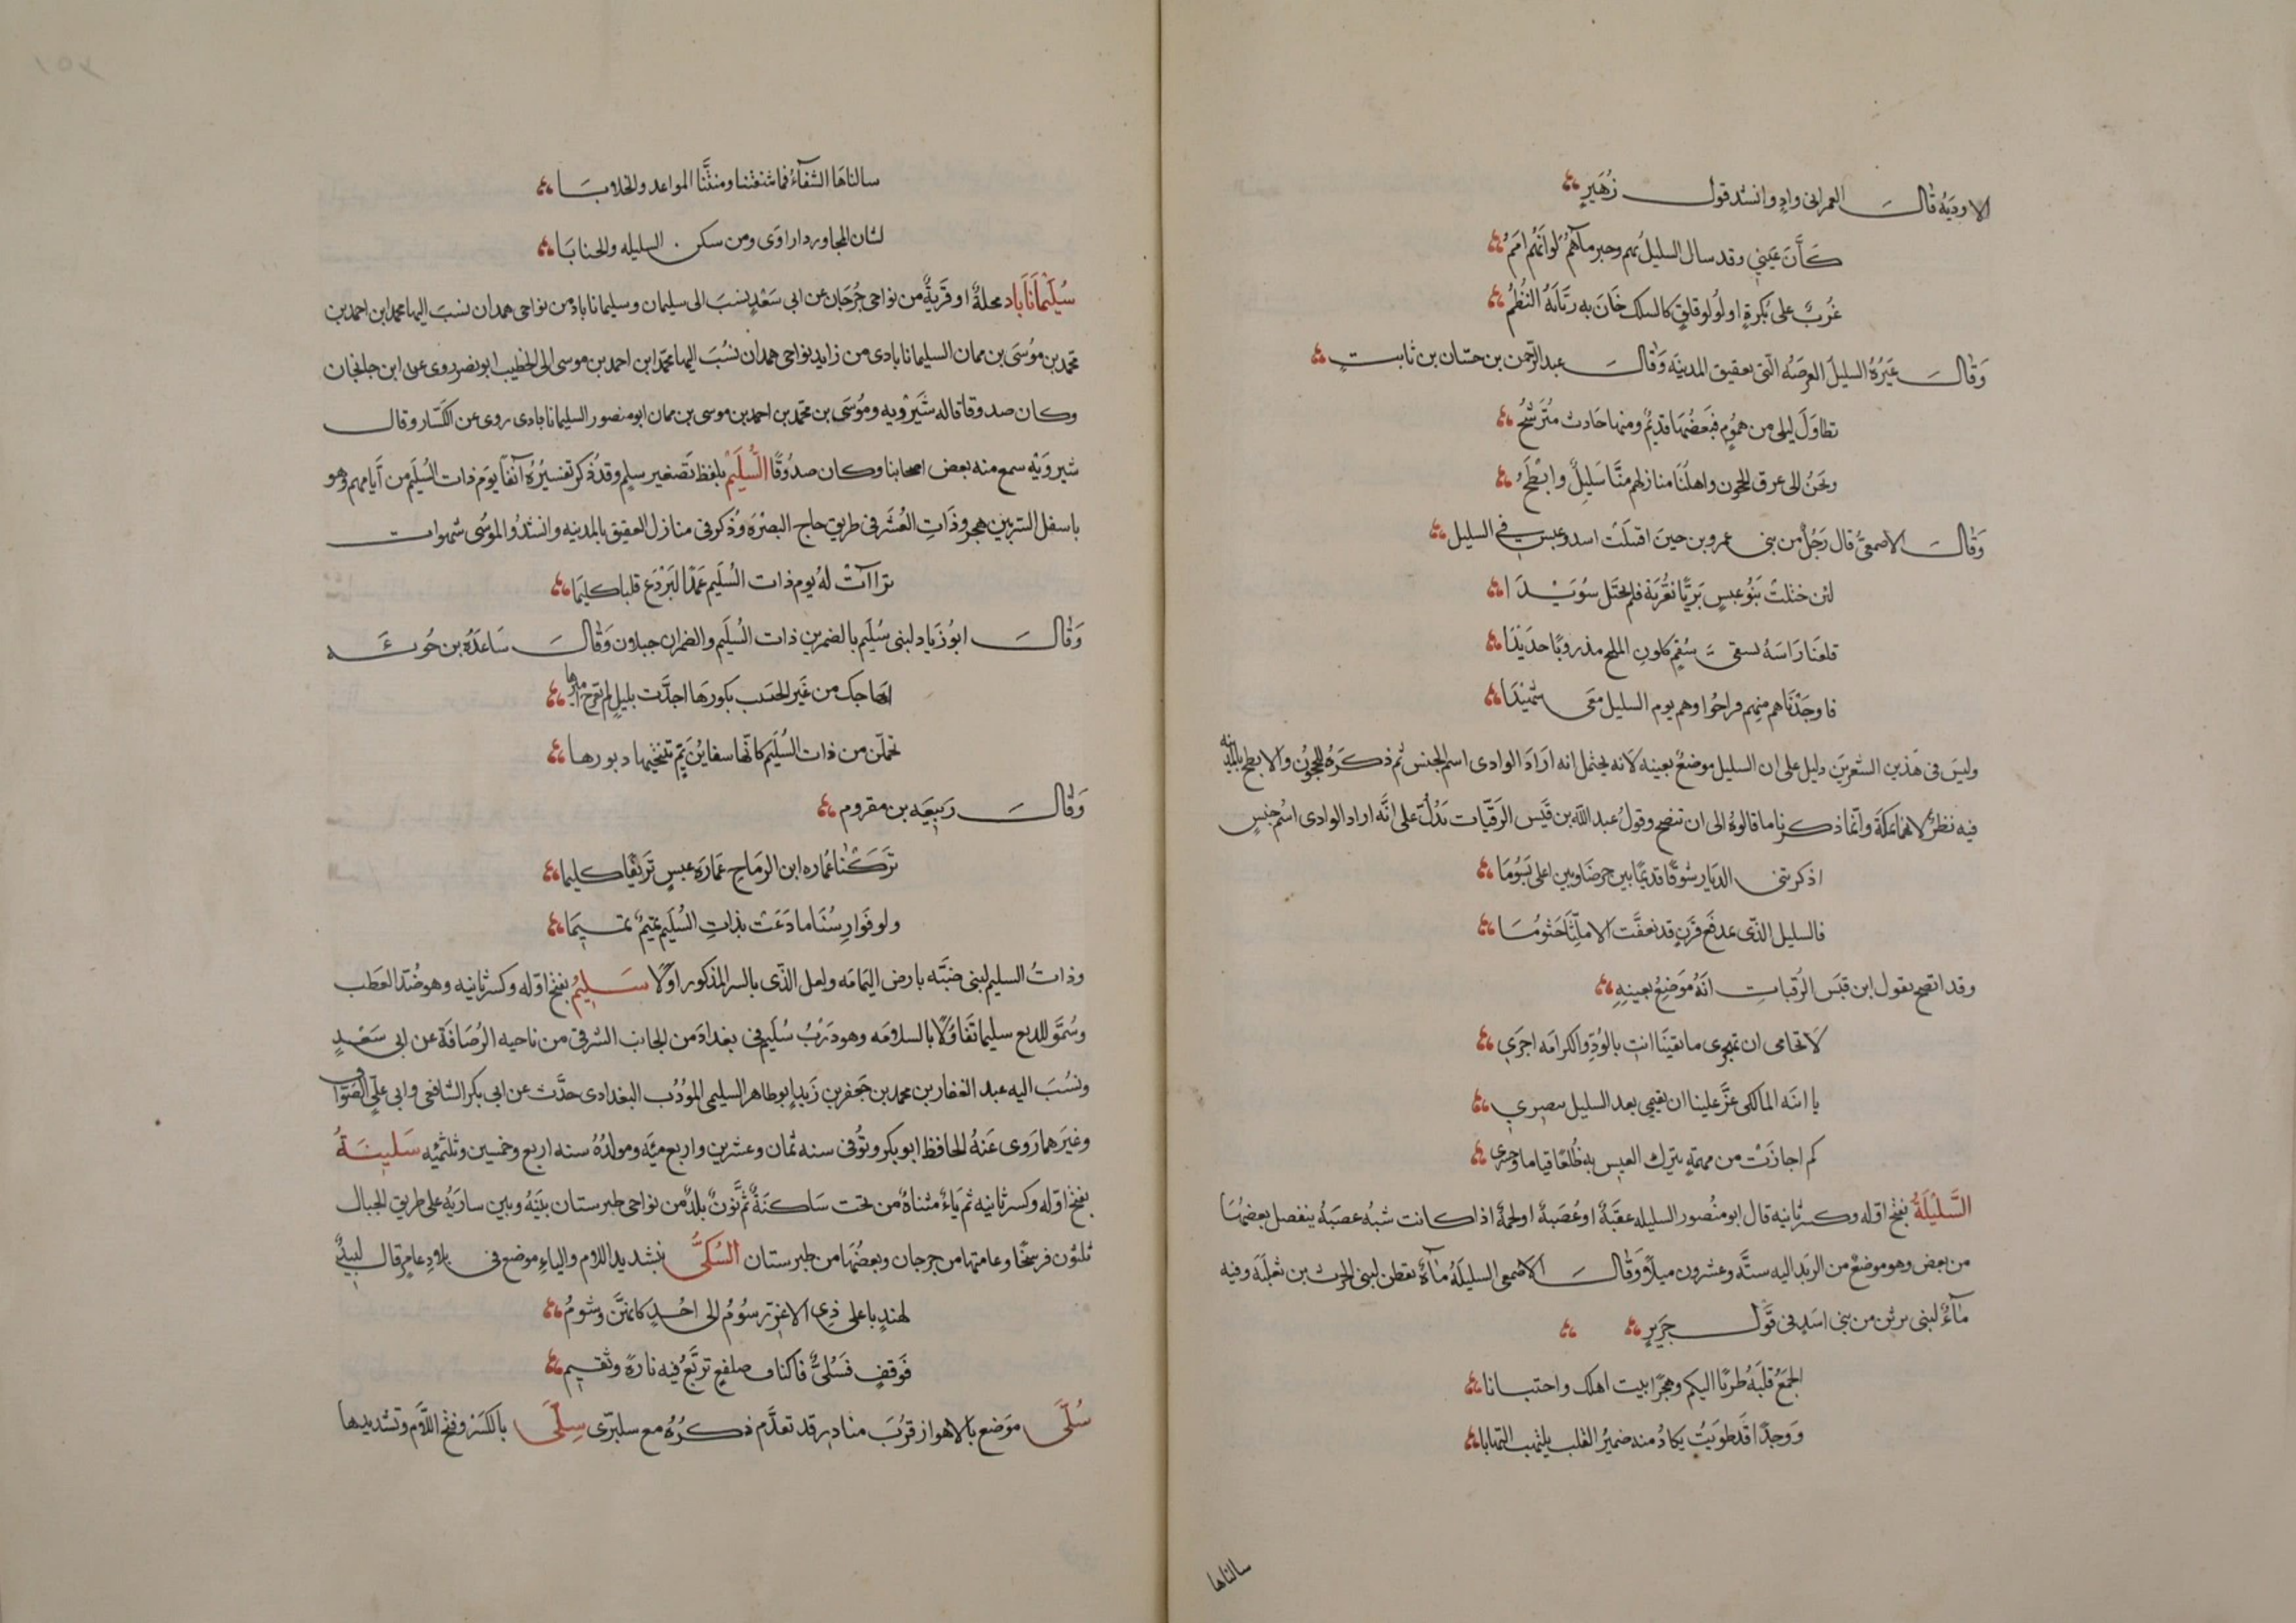 الاوديه قال العمرانى وادٍ وانشد قول زُهَيرٍ
كَأَنَّ عَينى وقد سال السليل بهم وجيرة ماهم لو انهم امم
غربٌ على بكرةٍ او لؤلؤ قلقٍ كالسلك خَانَ به رَبَّاتهُ النُظُمُ
وَقَالَ غَيرُهُ السليل العرصَه التى بعقيق المدينَه وَقَالَ عبد الرحمن بن حسّان بن ثابتٍ
تطاوَلَ ليلى من همومٍ فبَعضُهَا قديمٌ ومنها حَادث مُتَرَشّحُ
ونحنُ الى عرق الحجون واهلنَا منازلهم منَّا سَليلٌ وابطَحُ
وَقَالَ الاصمعىُّ قال رَجُلٌ من بنى عمرو بن حين اقتَلَت اسد وعبس فى السليل
لئن ختلت بَنُو عبسٍ بَريًّا بغُرّبَة فلم نختَل سُوَيدَا
قلعنَا رَاسَهُ بسقى سُقمٍ كلون الملح مذروبًا حديدًا
فاوجَدْنَاهم منهم فراحُوا وهم يوم السليل مَعى شَهيدَا
وليسَ فى هَذين الشعرين دليل على ان السليل موضعٌ بعينه لانه يحتمل انه ارَادَ الوادى اسم الجنس ثم ذكَرَهُ للحجون والابطح بالمدينه
فيه نظرٌ لانهما بمكَةَ وانّما ذكرنا ما قالوُهُ الى ان تتضح وقولُ عبد الله بن قَيس الرقيّات يدُلُّ على انَّه اراد الوادى اسْم جنسٍ
اذكرتنى الديَار شوقًا قديمًا بين حرضَا وبين اعلى يَسُومَا
فالسليل الذّى بمدفَع قَرنٍ قد تعفَّت الا ملِثًّا جَثُومُا
وقد اتضح بقول ابن قيَس الرُقيات انَهُ مَوضِعٌ بعينِهِ
لَا تخامى ان تهجرى ما بقينَا انتِ بالوُدِّ والكرامَه اجرَى
يا ابنَه المالكى عَزَّ علينا ان تقيمى بعد السليل ببصرى
كم اجازَتْ من مهمَهٍ يترك العيس به ظُلعًا قياما وحسرى
السَّليْلَةُ بفتح اوّله وكسر ثانيه قال ابو منُصور السليله عقبَةٌ او عُصَبةٌ او لحمةٌ اذا كانت شبهُ عصبَةُ ينفصل بعضهَا
من بعض وهو موضعٌ من الربَد اليه ستَّه وعشرون ميلاً وَقَالَ الاصمعى السليلَهُ مآءٌ بقطن لبنى الحرث بن ثعلبَةَ وفيه
مآءٌ لبنى برثن من بنى اسَدٍ فى قَوَل جَرَيرٍ
ايجمعُ قلبَهُ طربًا اليكم وهجرًا بيت اهلك واجتنابا
وَوجدًا قَد طويتُ يكادُ منه ضميرُ القلب يلتهب التهابا
سالناها
سالناهَا الشفَآءُ فما شفتنا ومنتَّنَا المواعد والخلابَا
لشان المجاور دار اروَى ومن سكن السليله والجنابَا
سُلَيْمَانَابَاد محلةٌ او قَريَةٌ من نواحى جُرجَان عن ابى سَعْدٍ ينسَبَ الى سليمان وسليماناباد من نواحى همدان نسبَ اليها محمد ابن احمد بن
محمّد بن موُسَى بن ممان السليماناباذى من زايد بنواحى همدان نسُبَ اليها محمّد ابن احمد بن موسى الى الخطيب ابو نصر روى عن ابن جانجان
وكان صدوقا قاله شيَروُيه ومُوسَى بن محمّد بن احمد بن موسى بن ممان ابو منصور السليماناباذى روى عن الكسّار وقال
شيروَيْه سمع منه بعض اصحابنا وكان صدُوقًا السُّلَيمْ بلفظ تَصغير سلمٍ وقد ذُكر تفسيُرُهُ آنفاً يوَم ذات السُليَم من أيامهم وهو
باسفل السرّ بين هجر وذَاتِ العُشَر فى طريق حاج البصرَه وذُكر فى منازل العقيق بالمدينه وانشدُوا لموسى شهوات
تراآت لهُ يوم ذات السُليَم عَمدًا لتَرْدَعَ قلبا كليمَا
وَقَالَ ابوُ زَياد لبنى سُلَيم بالضمرين ذات السُلَيم والضمران جبلان وَقَالَ سَاعدَهُ بن حُوئَيه
اهاجك من غَير الحبيب بكورَها اجدَّت بليلٍ لم يعرج اميرها
تحملّن من ذات السُلَيم كانّها سفاينُ يَمٍّ تنتحيها دبورها
وَقَالَ رَبيعَه بن مقروم
تَركْنَا عُماره ابن الرمَاحِ عمَارَه عبسٍ تَزيفًا كليما
ولو فَوارِسُنَا ما دَعَت بذاتِ السُليَم تميمٌ تميمَا
وذاتُ السليم لبنى ضبَّه بارض اليمَامَه ولعل الذّى بالسر المذكور اوّلًا سَليمُ بفتح اوّله وكسر ثانيه وهو ضدّ العَطب
وسُمّو اللديع سليما تَفَاؤُلًا بالسلامَه وهو دَرْبُ سُليَم فى بغدادَ من الجانب الشرقى من ناحيه الرصَافَة عن ابى سَعْدٍ
ونسُبَ اليه عبد الغفار بن محمد بن جَعفر بن زَيد ابو طاهر السليمى المؤدُب البغدادى حدَّث عن ابى بكر الشافعى وابى علىّ الصَوّاف
وغَيرَهما رَوى عَنهُ الحافظ ابو بكر وتوُفى سنه ثمان وعشرين واربع ميَه ومولدُهُ سنه اربع وخمسين وثلثميْه سَلِينَةُ
بفتح اوّله وكسر ثانيه ثم يَاءٌ مثناةٌ من تحت سَاكنَةٌ ثمَّ نونٌ بلدٌ من نواحى طبرستان بيَنَهُ وبين سارَيهُ على طريق الجبال
ثلثون فرسخًا وعامتها من جرجان وبعضُهَا من طبرستان السُلىُّ بتشديد اللام والياءِ موضع فى بلادِ عامرٍ قال لبيدٌ
لهندٍ باعلى ذِى الاغرّ رسُومُ الى احُدٍ كانهنَّ وشُومُ
فَوقفٍ فسُلىٍّ فاكناف ضلفعٍ تربَّعُ فيه تارةً وتقيم
سُلَّى موَضع بالاهواز قرُبَ مناذر قد تقدَّم ذكُرُه مع سلبرّى سِلَّى بالكسَر وفتح اللَّام وتشديدها